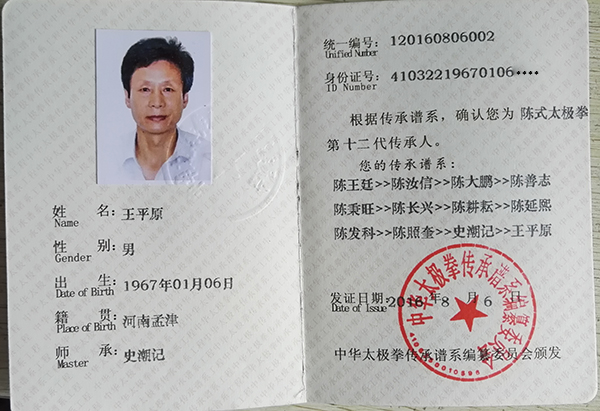 姓 名：王平原
Name
性 别：男
Gender
出 生：1967年01月06日
Date of Birth
籍 贯：河南孟津
Place of Birth
师 承：史潮记
Master
统一编号：120160806002
Unified Number
身份证号：41032219670106****
ID Number
根据传承谱系，确认您为 陈式太极拳
第十二代传承人。
您的传承谱系：
陈王廷>>陈汝信>>陈大鹏>>陈善志
陈秉旺>>陈长兴>>陈耕耘>>陈延熙
陈发科>>陈照奎>>史潮记>>王平原
发证日期：2016年 8 月 6 日
Date of Issue
中华太极拳传承谱系编纂委员会
中华太极拳传承谱系编纂委员会颁发